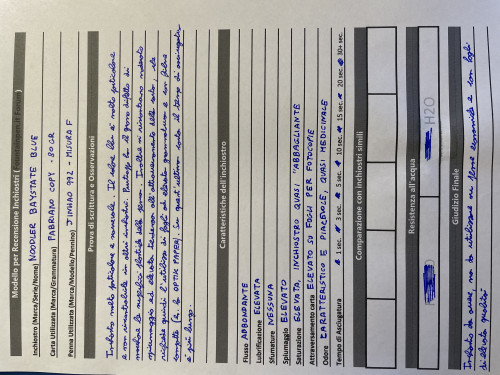 Modello per Recensione Inchiostri (fountainpen.it Forum)
Inchiostro (Marca/Serie/Nome) NOODLER BAYSTATE BLUE
Carta Utilizzata (Marca/Grammatura) FABRIANO COPY - 80 GR
Penna Utilizzata (Marca/Modello/Pennino) JINHAO 992 - MISURA F
Prova di scrittura e Osservazioni
Inchiostro molto particolare e The color blu è molto particolare
e non riscontrabile in altri inchiostri. Purtroppo ha il grosso difetto di
macchiare la maggior parte delle penne. Inoltre si riscontrano notevole
spiumaggio ed elevata tendenza all'attraversamento della carta,
richiede quindi l'utilizzo di fogli ad elevata grammatura e con fibre
compatte (es. OPTIK PAPER). Su quest'ultima carta il tempo di asciugatura
è più lungo.
Caratteristiche dell'inchiostro
Flusso ABBONDANTE
Lubrificazione ELEVATA
Sfumature NESSUNA
Spiumaggio ELEVATO
Saturazione ELEVATA, INCHIOSTRO QUASI "ABBAGLIANTE"
Attraversamento carta ELEVATO SU FOGLI PER FOTOCOPIE
Odore CARATTERISTICO E PIACEVOLE, QUASI MEDICINALE
Tempo di Asciugatura 1 sec. 3 sec. 5 sec. 10 sec. 15 sec. 20 sec. 30+ sec.
Comparazione con inchiostri simili
Resistenza all'acqua
H2O
Giudizio Finale
Inchiostro da avere, ma da utilizzare su penne economiche e con fogli
di elevata qualità!